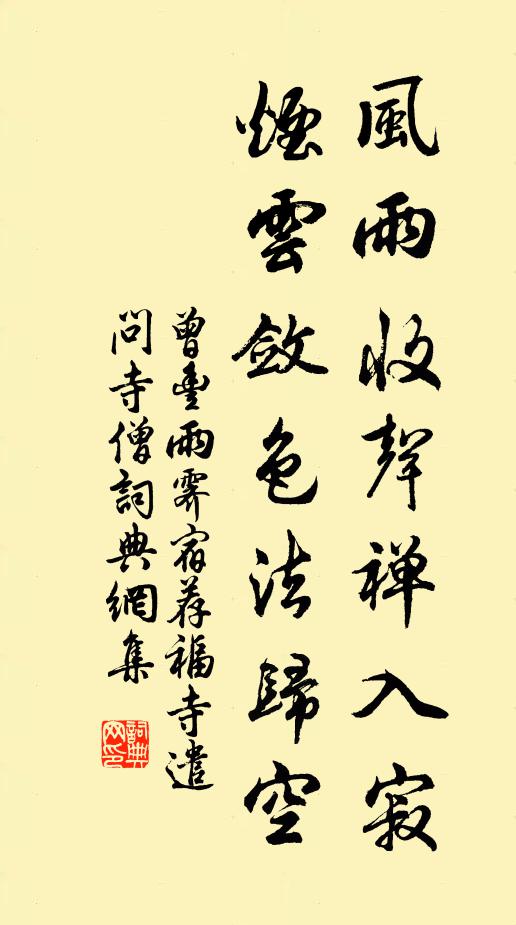 風雨收聲禅入寂
煙雲斂色法歸空
曾豊雨霽宿荐福寺遣
問寺僧詞典網集
詞典网印